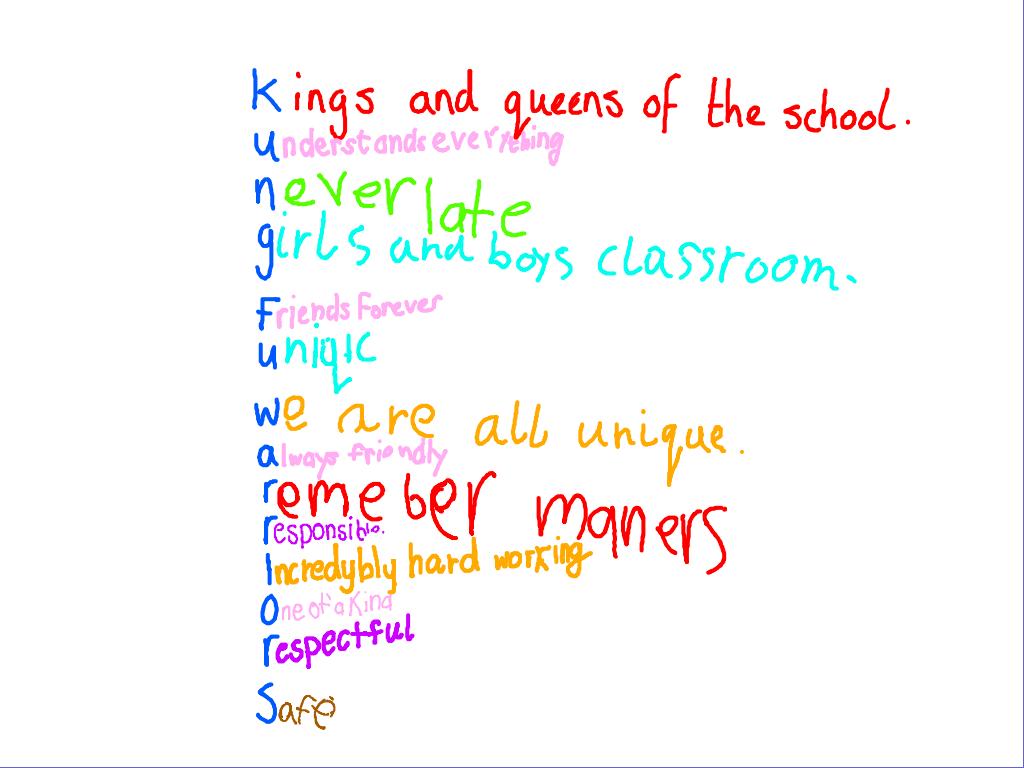 Kings and queens of the school.
understands everything
never late
girls and boys classroom.
Friends Forever
uniqic
we are all unique.
always friendly
remeber maners
responsible.
Incredybly hard working
One of a Kind
respectful
Safe